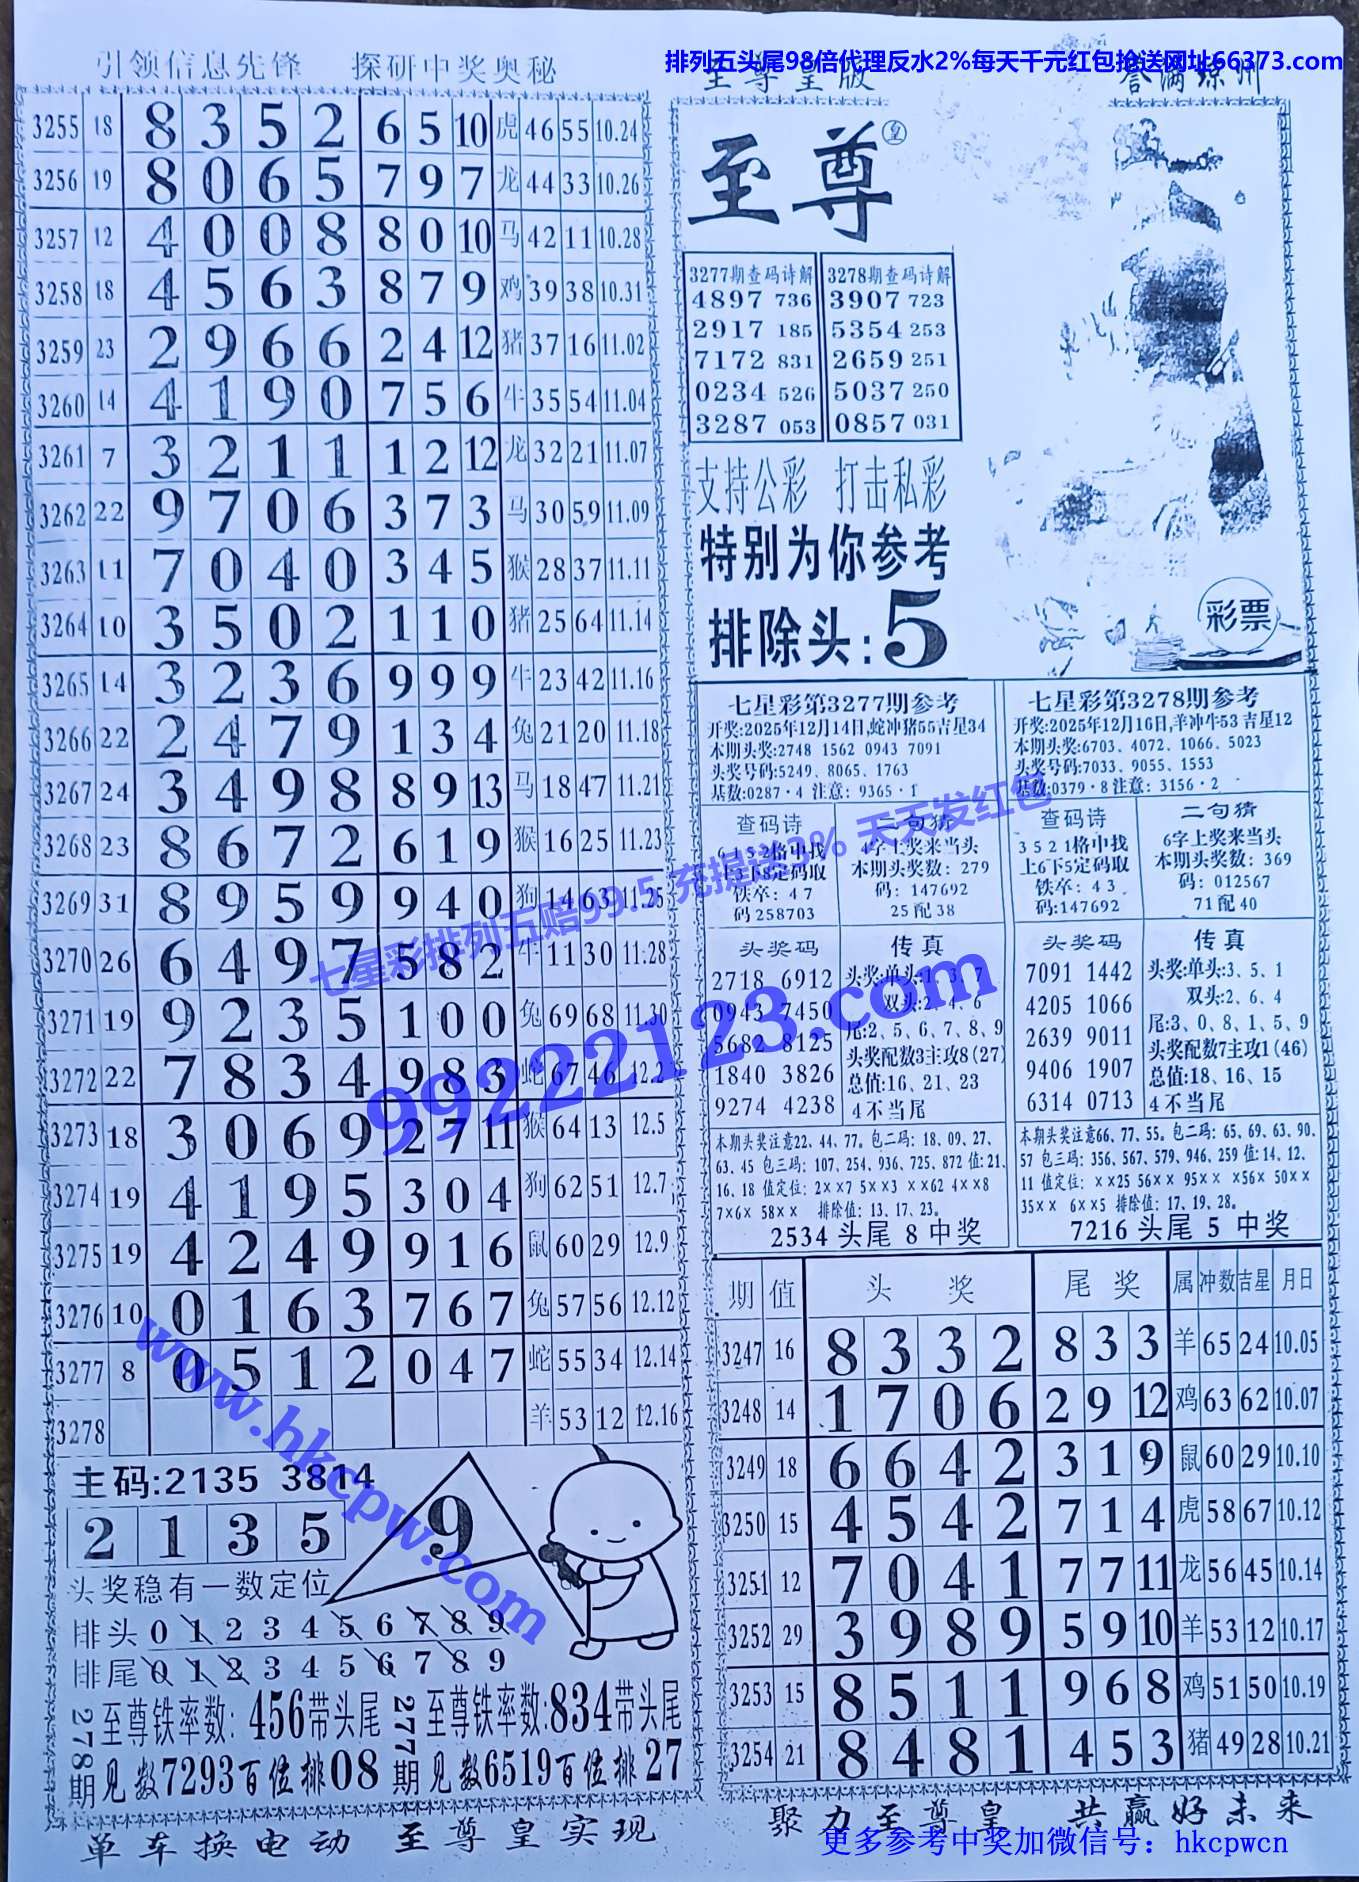 排列五头尾98倍代理反水2%每天千元红包抢送网址66373.com
引领信息先锋 探研中奖奥秘
至尊皇版 誉满琼州
3255 18 8 3 5 2 6 5 10 虎 46 55 10.24
3256 19 8 0 6 5 7 9 7 龙 44 33 10.26
3257 12 4 0 0 8 8 0 10 马 42 11 10.28
3258 18 4 5 6 3 8 7 9 鸡 39 38 10.31
3259 23 2 9 6 6 2 4 12 猪 37 16 11.02
3260 14 4 1 9 0 7 5 6 牛 35 54 11.04
3261 7 3 2 1 1 1 2 12 龙 32 21 11.07
3262 22 9 7 0 6 3 7 3 马 30 59 11.09
3263 11 7 0 4 0 3 4 5 猴 28 37 11.11
3264 10 3 5 0 2 1 1 0 猪 25 64 11.14
3265 14 3 2 3 6 9 9 9 牛 23 42 11.16
3266 22 2 4 7 9 1 3 4 兔 21 20 11.18
3267 24 3 4 9 8 8 9 13 马 18 47 11.21
3268 23 8 6 7 2 6 1 9 猴 16 25 11.23
3269 31 8 9 5 9 9 4 0 狗 14 63 11.25
3270 26 6 4 9 7 5 8 2 牛 11 30 11.28
3271 19 9 2 3 5 1 0 0 兔 69 68 11.30
3272 22 7 8 3 4 9 8 3 蛇 67 46 12.2
3273 18 3 0 6 9 2 7 11 猴 64 13 12.5
3274 19 4 1 9 5 3 0 4 狗 62 51 12.7
3275 19 4 2 4 9 9 1 6 鼠 60 29 12.9
3276 10 0 1 6 3 7 6 7 兔 57 56 12.12
3277 8 0 5 1 2 0 4 7 蛇 55 34 12.14
3278 羊 53 12 12.16
主码:2135 3814
2 1 3 5
9
头奖稳有一数定位
排头 0 1 2 3 4 5 6 7 8 9
排尾 0 1 2 3 4 5 6 7 8 9
278期
至尊铁率数: 456带头尾
见数7293百位排08
277期
至尊铁率数:834带头尾
见数6519百位排27
至尊
皇
3277期查码诗解
4897 736
2917 185
7172 831
0234 526
3287 053
3278期查码诗解
3907 723
5354 253
2659 251
5037 250
0857 031
支持公彩 打击私彩
特别为你参考
排除头:5
彩票
七星彩第3277期参考
开奖:2025年12月14日,蛇冲猪55吉星34
本期头奖:2748 1562 0943 7091
头奖号码:5249、8065、1763
基数:0287·4 注意: 9365·1
查码诗
6 1 5 2格中找
上3下8定码取
铁卒: 4 7
码258703
二句猜
4字上奖来当头
本期头奖数: 279
码: 147692
25配38
头奖码
2718 6912
0943 7450
5682 8125
1840 3826
9274 4238
传真
头奖:单头:1、3、7
双头:2、4、6
尾:2、5、6、7、8、9
头奖配数3主攻8(27)
总值:16、21、23
4不当尾
本期头奖注意22、44、77。包二码: 18、09、27、
63、45 包三码: 107、254、936、725、872 值:21、
16、18 值定位: 2××7 5××3 ××62 4××8
7×6× 58×× 排除值: 13、17、23。
2534 头尾 8 中奖
七星彩第3278期参考
开奖:2025年12月16日,羊冲牛53 吉星12
本期头奖:6703、4072、1066、5023
头奖号码:7033、9055、1553
基数:0379·8 注意: 3156·2
查码诗
3 5 2 1格中找
上6下5定码取
铁卒: 4 3
码:147692
二句猜
6字上奖来当头
本期头奖数: 369
码: 012567
71配40
头奖码
7091 1442
4205 1066
2639 9011
9406 1907
6314 0713
传真
头奖:单头:3、5、1
双头:2、6、4
尾:3、0、8、1、5、9
头奖配数7主攻1(46)
总值:18、16、15
4不当尾
本期头奖注意66、77、55。包二码: 65、69、63、90、
57 包三码: 356、567、579、946、259 值:14、12、
11 值定位: ××25 56×× 95×× ×56× 50××
35×× 6××5 排除值: 17、19、28。
7216 头尾 5 中奖
期 值 头奖 尾奖 属 冲数 吉星 月日
3247 16 8 3 3 2 8 3 3 羊 65 24 10.05
3248 14 1 7 0 6 2 9 12 鸡 63 62 10.07
3249 18 6 6 4 2 3 1 9 鼠 60 29 10.10
3250 15 4 5 4 2 7 1 4 虎 58 67 10.12
3251 12 7 0 4 1 7 7 11 龙 56 45 10.14
3252 29 3 9 8 9 5 9 10 羊 53 12 10.17
3253 15 8 5 1 1 9 6 8 鸡 51 50 10.19
3254 21 8 4 8 1 4 5 3 猪 49 28 10.21
七星彩排列五赔99.5 充提送3% 天天发红包
99222123.com
www.hkcpw.com
单车换电动 至尊皇实现 聚力至尊皇 共赢好未来
更多参考中奖加微信号：hkcpwcn